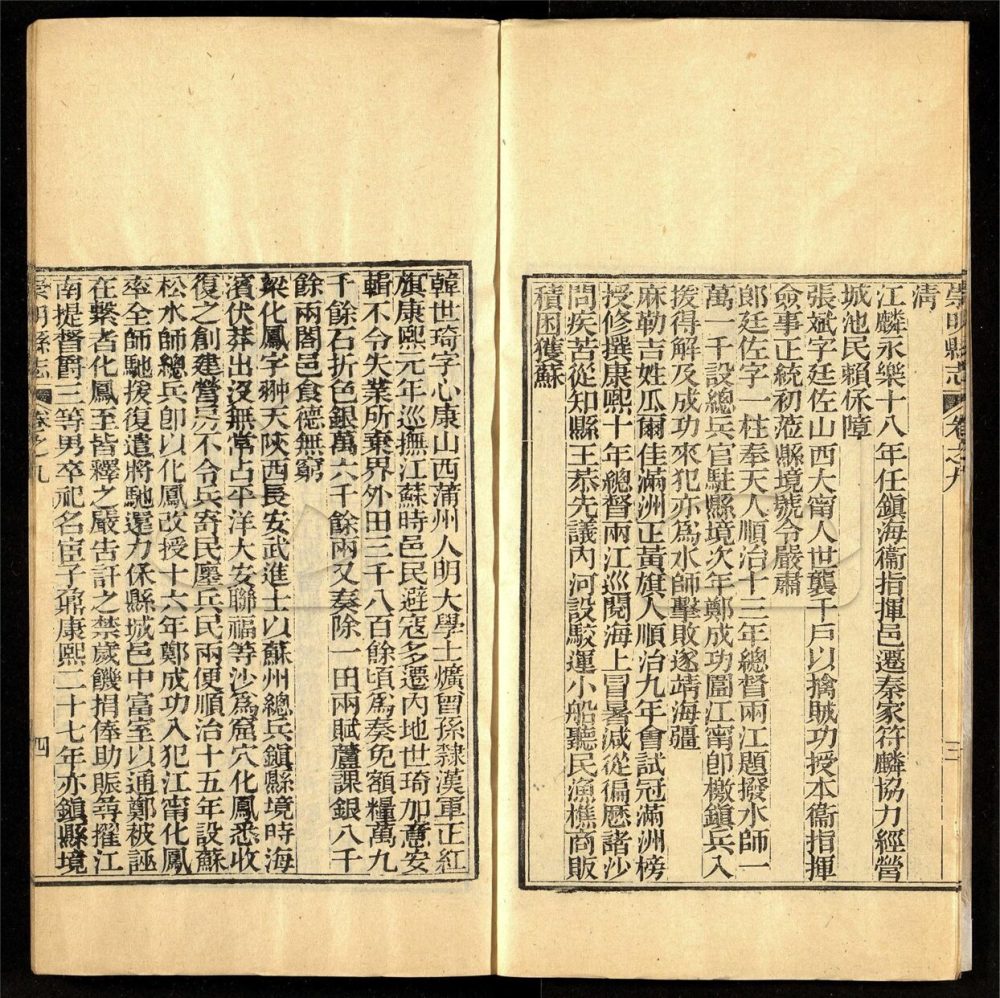 崇明縣志 卷之九 三
清
江麟永樂十八年任鎮海衞指揮邑遷秦家符麟協力經營
城池民賴保障
張斌字廷佐山西大甯人世襲千戶以擒賊功授本衞指揮
僉事正統初蒞縣境號令嚴肅
郎廷佐字一柱奉天人順治十三年總督兩江題撥水師一
萬一千設總兵官駐縣境次年鄭成功圍江甯卽檄鎮兵入
援得解及成功來犯亦爲水師擊敗遂靖海疆
麻勒吉姓瓜爾佳滿洲正黃旗人順治九年會試冠滿洲榜
授修撰康熙十年總督兩江巡閱海上冒暑減從偏歷諸沙
問疾苦從知縣王恭先議內河設駁運小船聽民漁樵商販
積困獲蘇
韓世琦字心康山西蒲州人明大學士爌曾孫隸漢軍正紅
旗康熙元年巡撫江蘇時邑民避寇多遷內地世琦加意安
輯不令失業所棄界外田三千八百餘頃爲奏免額糧萬九
千餘石折色銀萬六千餘兩又奏除一田兩賦蘆課銀八千
餘兩闔邑食德無窮
梁化鳳字翀天陝西長安武進士以蘇州總兵鎮縣境時海
濱伏莽出沒無常占平洋大安聯福等沙爲窟穴化鳳悉收
復之創建營房不令兵寄民廛兵民兩便順治十五年設蘇
松水師總兵卽以化鳳改授十六年鄭成功入犯江甯化鳳
率全師馳援復遣將馳還力保縣城邑中富室以通鄭被誣
在繫者化鳳至皆釋之嚴吿訐之禁歲饑捐俸助賑尋擢江
南提督爵三等男卒祀名宦子鼐康熙二十七年亦鎮縣境
崇明縣志 卷之九 四